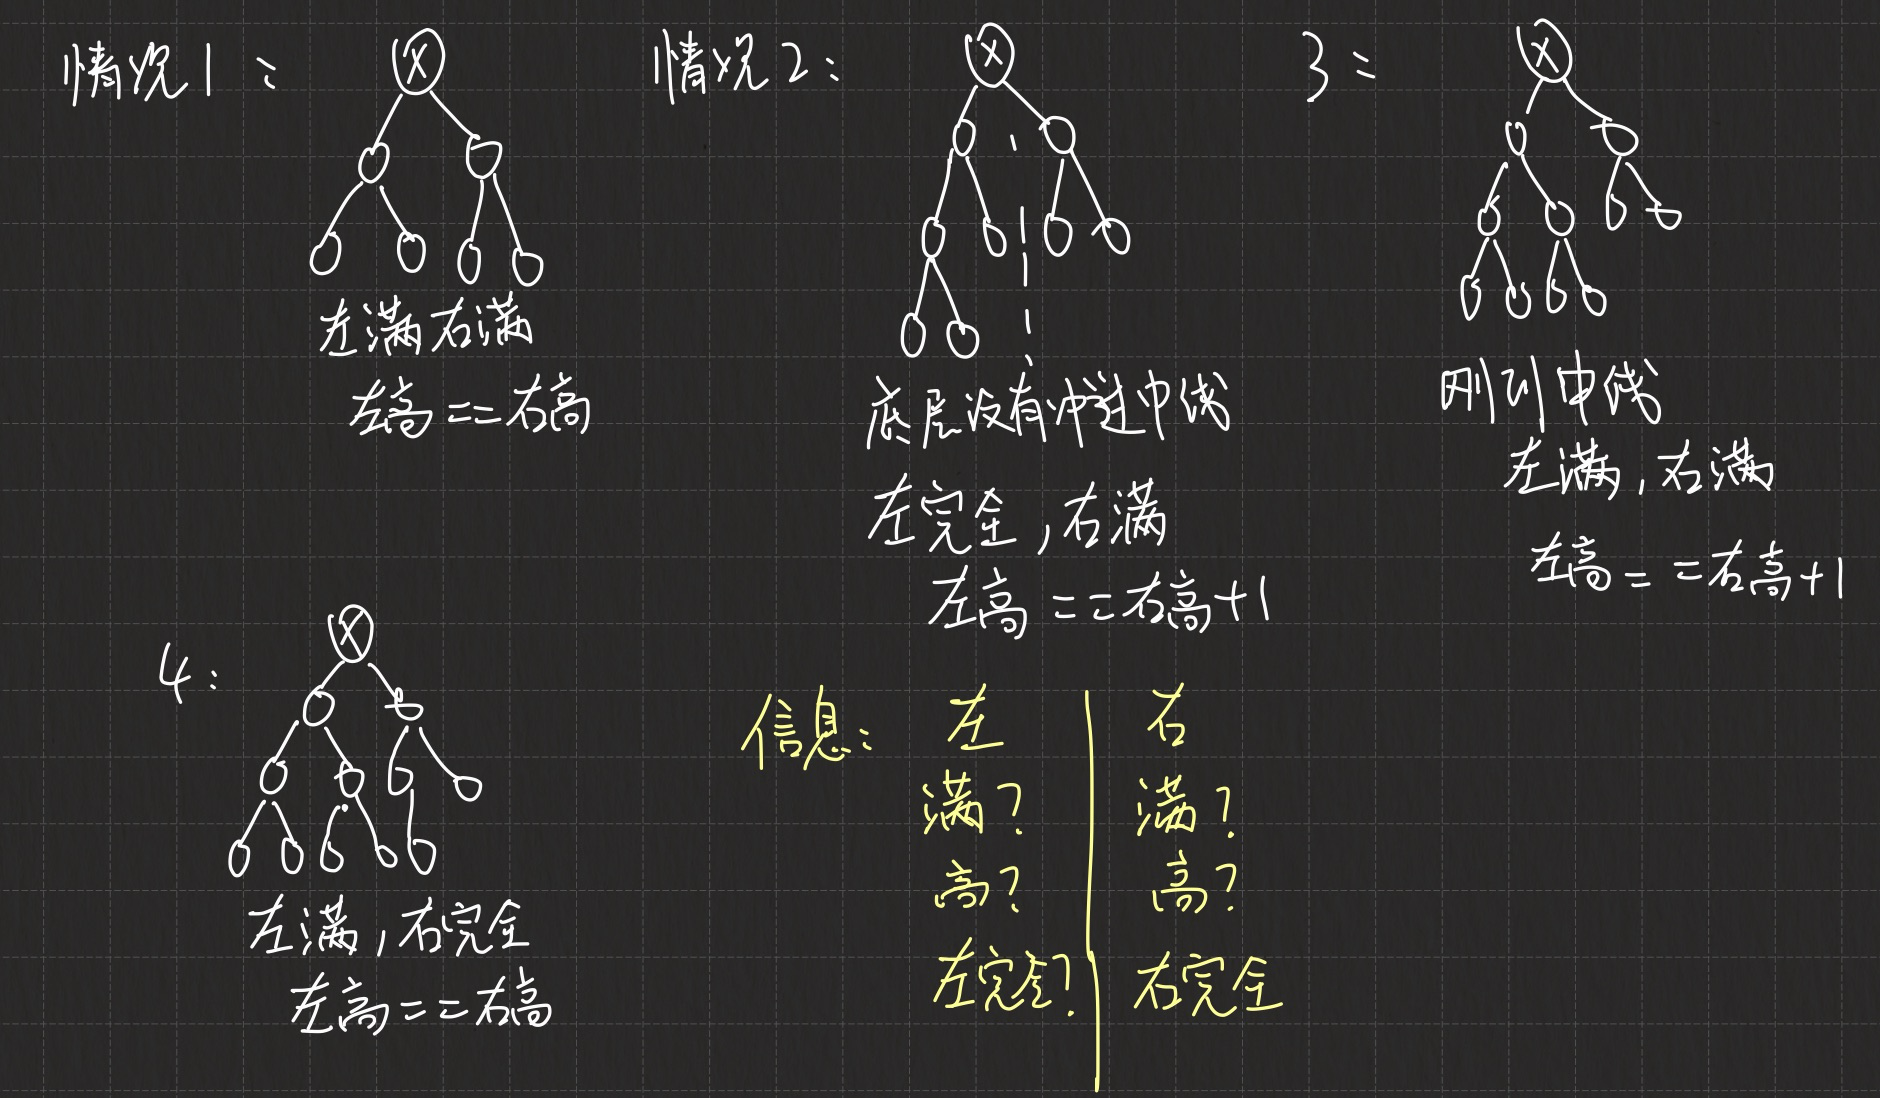 情况1：
X
左满右满
左高==右高
情况2：
X
底层没有冲过中线
左完全,右满
左高==右高+1
3：
X
刚到中线
左满,右满
左高==右高+1
4：
X
左满,右完全
左高==右高
信息：
左 右
满? 满?
高? 高?
左完全? 右完全